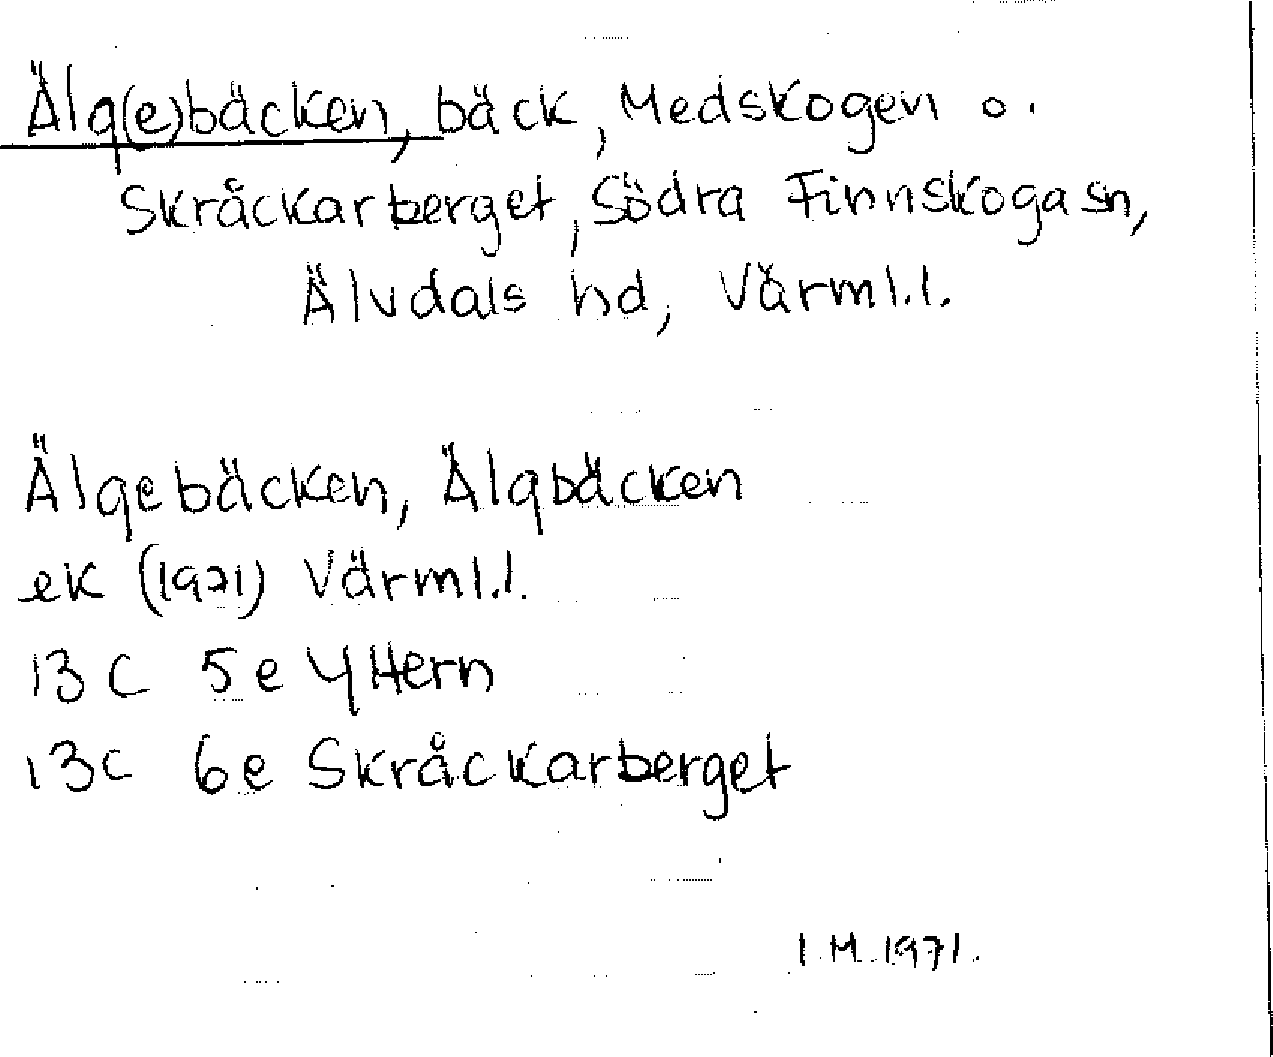 Älg(e)bäcken, bäck, Medskogen o.
Skråckarberget, Södra Finnskoga sn,
Älvdals hd, Värml.l.
Älgebäcken, Älgbäcken
ek (1971) Värml.l.
13 C 5e Yttern
13C 6e Skråckarberget
I.M. 1971.